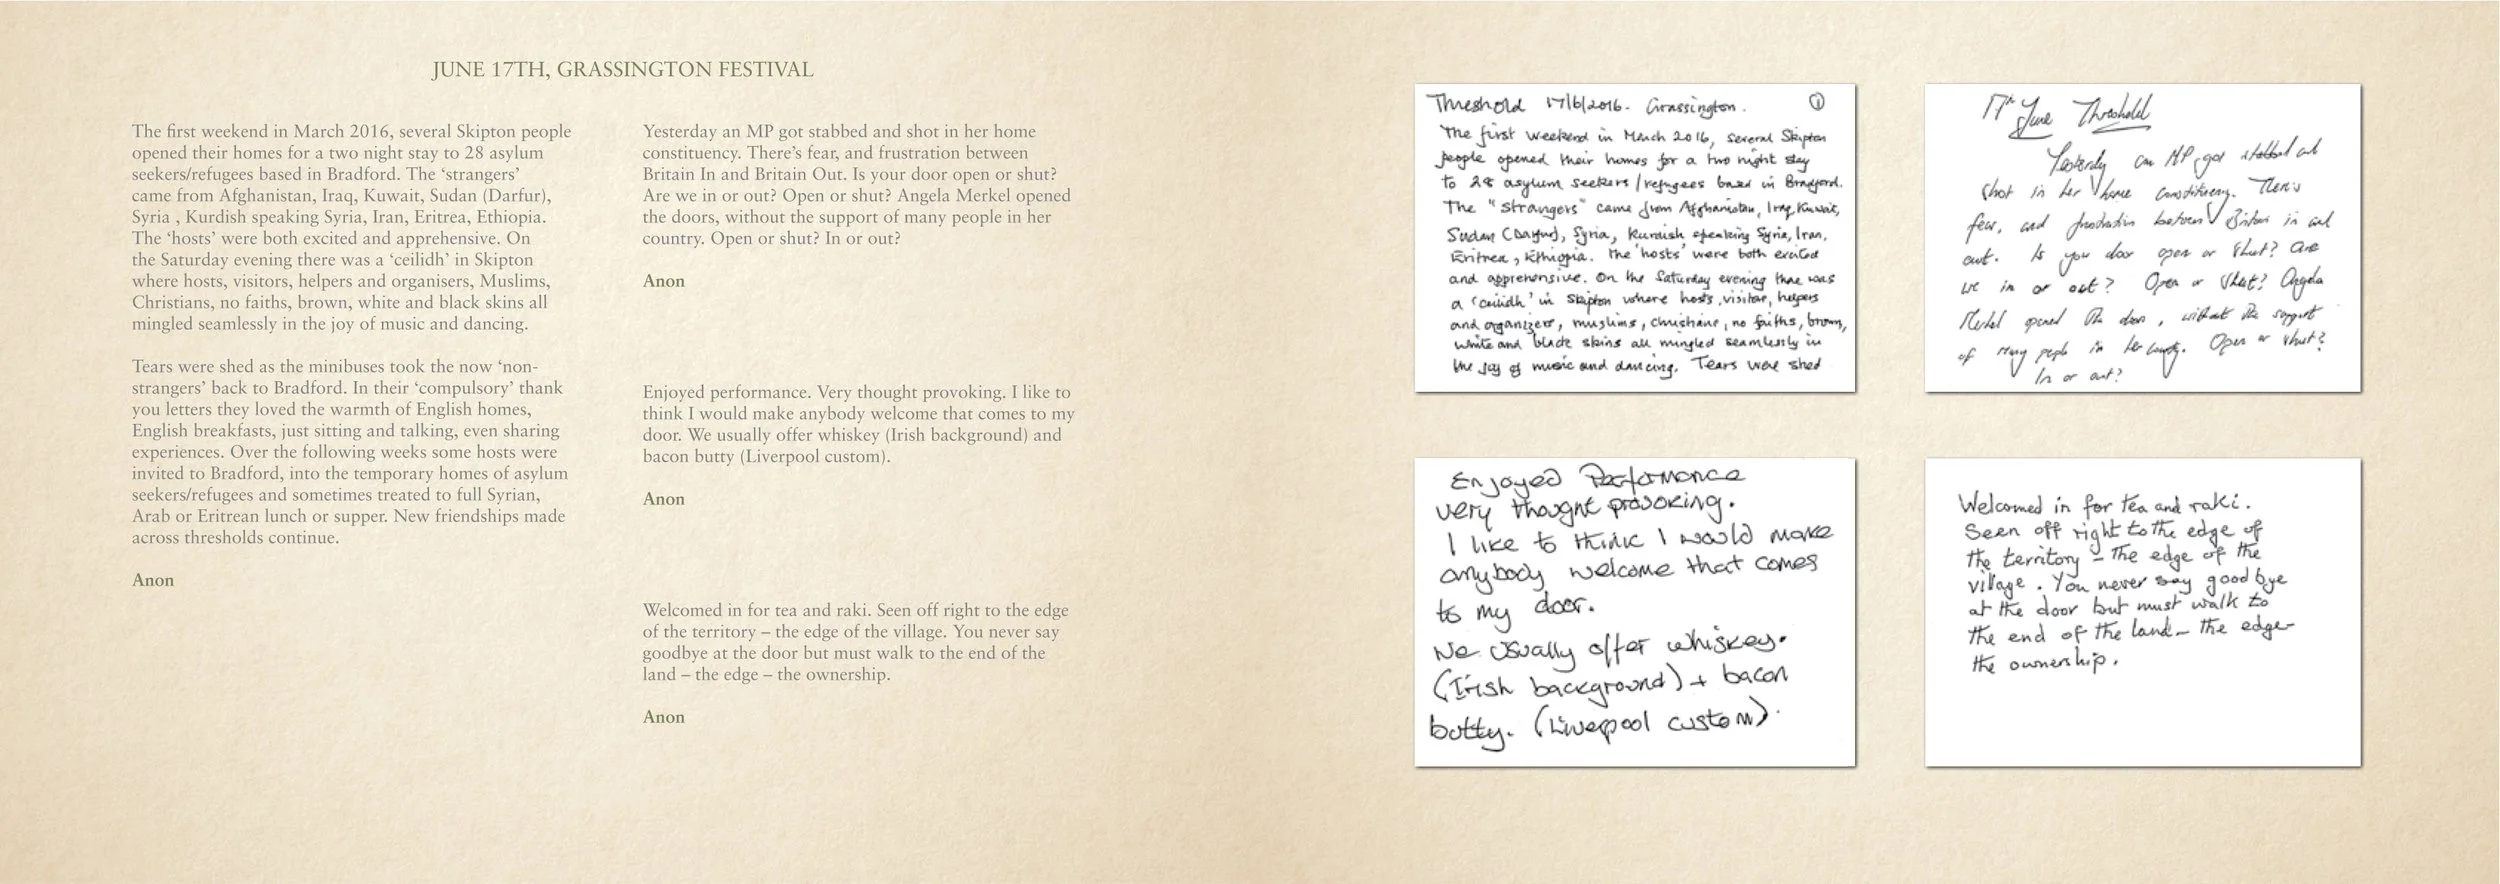 JUNE 17TH, GRASSINGTON FESTIVAL
The first weekend in March 2016, several Skipton people
opened their homes for a two night stay to 28 asylum
seekers/refugees based in Bradford. The ‘strangers’
came from Afghanistan, Iraq, Kuwait, Sudan (Darfur),
Syria , Kurdish speaking Syria, Iran, Eritrea, Ethiopia.
The ‘hosts’ were both excited and apprehensive. On
the Saturday evening there was a ‘ceilidh’ in Skipton
where hosts, visitors, helpers and organisers, Muslims,
Christians, no faiths, brown, white and black skins all
mingled seamlessly in the joy of music and dancing.
Tears were shed as the minibuses took the now ‘non-
strangers’ back to Bradford. In their ‘compulsory’ thank
you letters they loved the warmth of English homes,
English breakfasts, just sitting and talking, even sharing
experiences. Over the following weeks some hosts were
invited to Bradford, into the temporary homes of asylum
seekers/refugees and sometimes treated to full Syrian,
Arab or Eritrean lunch or supper. New friendships made
across thresholds continue.
Anon
Yesterday an MP got stabbed and shot in her home
constituency. There’s fear, and frustration between
Britain In and Britain Out. Is your door open or shut?
Are we in or out? Open or shut? Angela Merkel opened
the doors, without the support of many people in her
country. Open or shut? In or out?
Anon
Enjoyed performance. Very thought provoking. I like to
think I would make anybody welcome that comes to my
door. We usually offer whiskey (Irish background) and
bacon butty (Liverpool custom).
Anon
Welcomed in for tea and raki. Seen off right to the edge
of the territory – the edge of the village. You never say
goodbye at the door but must walk to the end of the
land – the edge – the ownership.
Anon
Threshold 17/6/2016. Grassington. 1
The first weekend in March 2016, several Skipton
people opened their homes for a two night stay
to 28 asylum seekers/refugees based in Bradford.
The "strangers" came from Afghanistan, Iraq, Kuwait,
Sudan (Darfur), Syria, Kurdish speaking Syria, Iran,
Eritrea, Ethiopia. The 'hosts' were both excited
and apprehensive. On the Saturday evening there was
a 'ceilidh' in Skipton where hosts, visitors, helpers
and organizers, muslims, christians, no faiths, brown,
white and black skins all mingled seamlessly in
the joy of music and dancing. Tears were shed
17th June Threshold
Yesterday an MP got stabbed and
shot in her home constituency. There's
fear, and frustration between Britain in and
out. Is your door open or shut? Are
we in or out? Open or shut? Angela
Merkel opened the doors, without the support
of many people in her country. Open or shut?
In or out?
Enjoyed Performance
very thought provoking.
I like to think I would make
anybody welcome that comes
to my door.
We usually offer whiskey.
(Irish background) + bacon
butty. (Liverpool custom).
Welcomed in for tea and raki.
Seen off right to the edge of
the territory – the edge of the
village. You never say goodbye
at the door but must walk to
the end of the land – the edge –
the ownership.